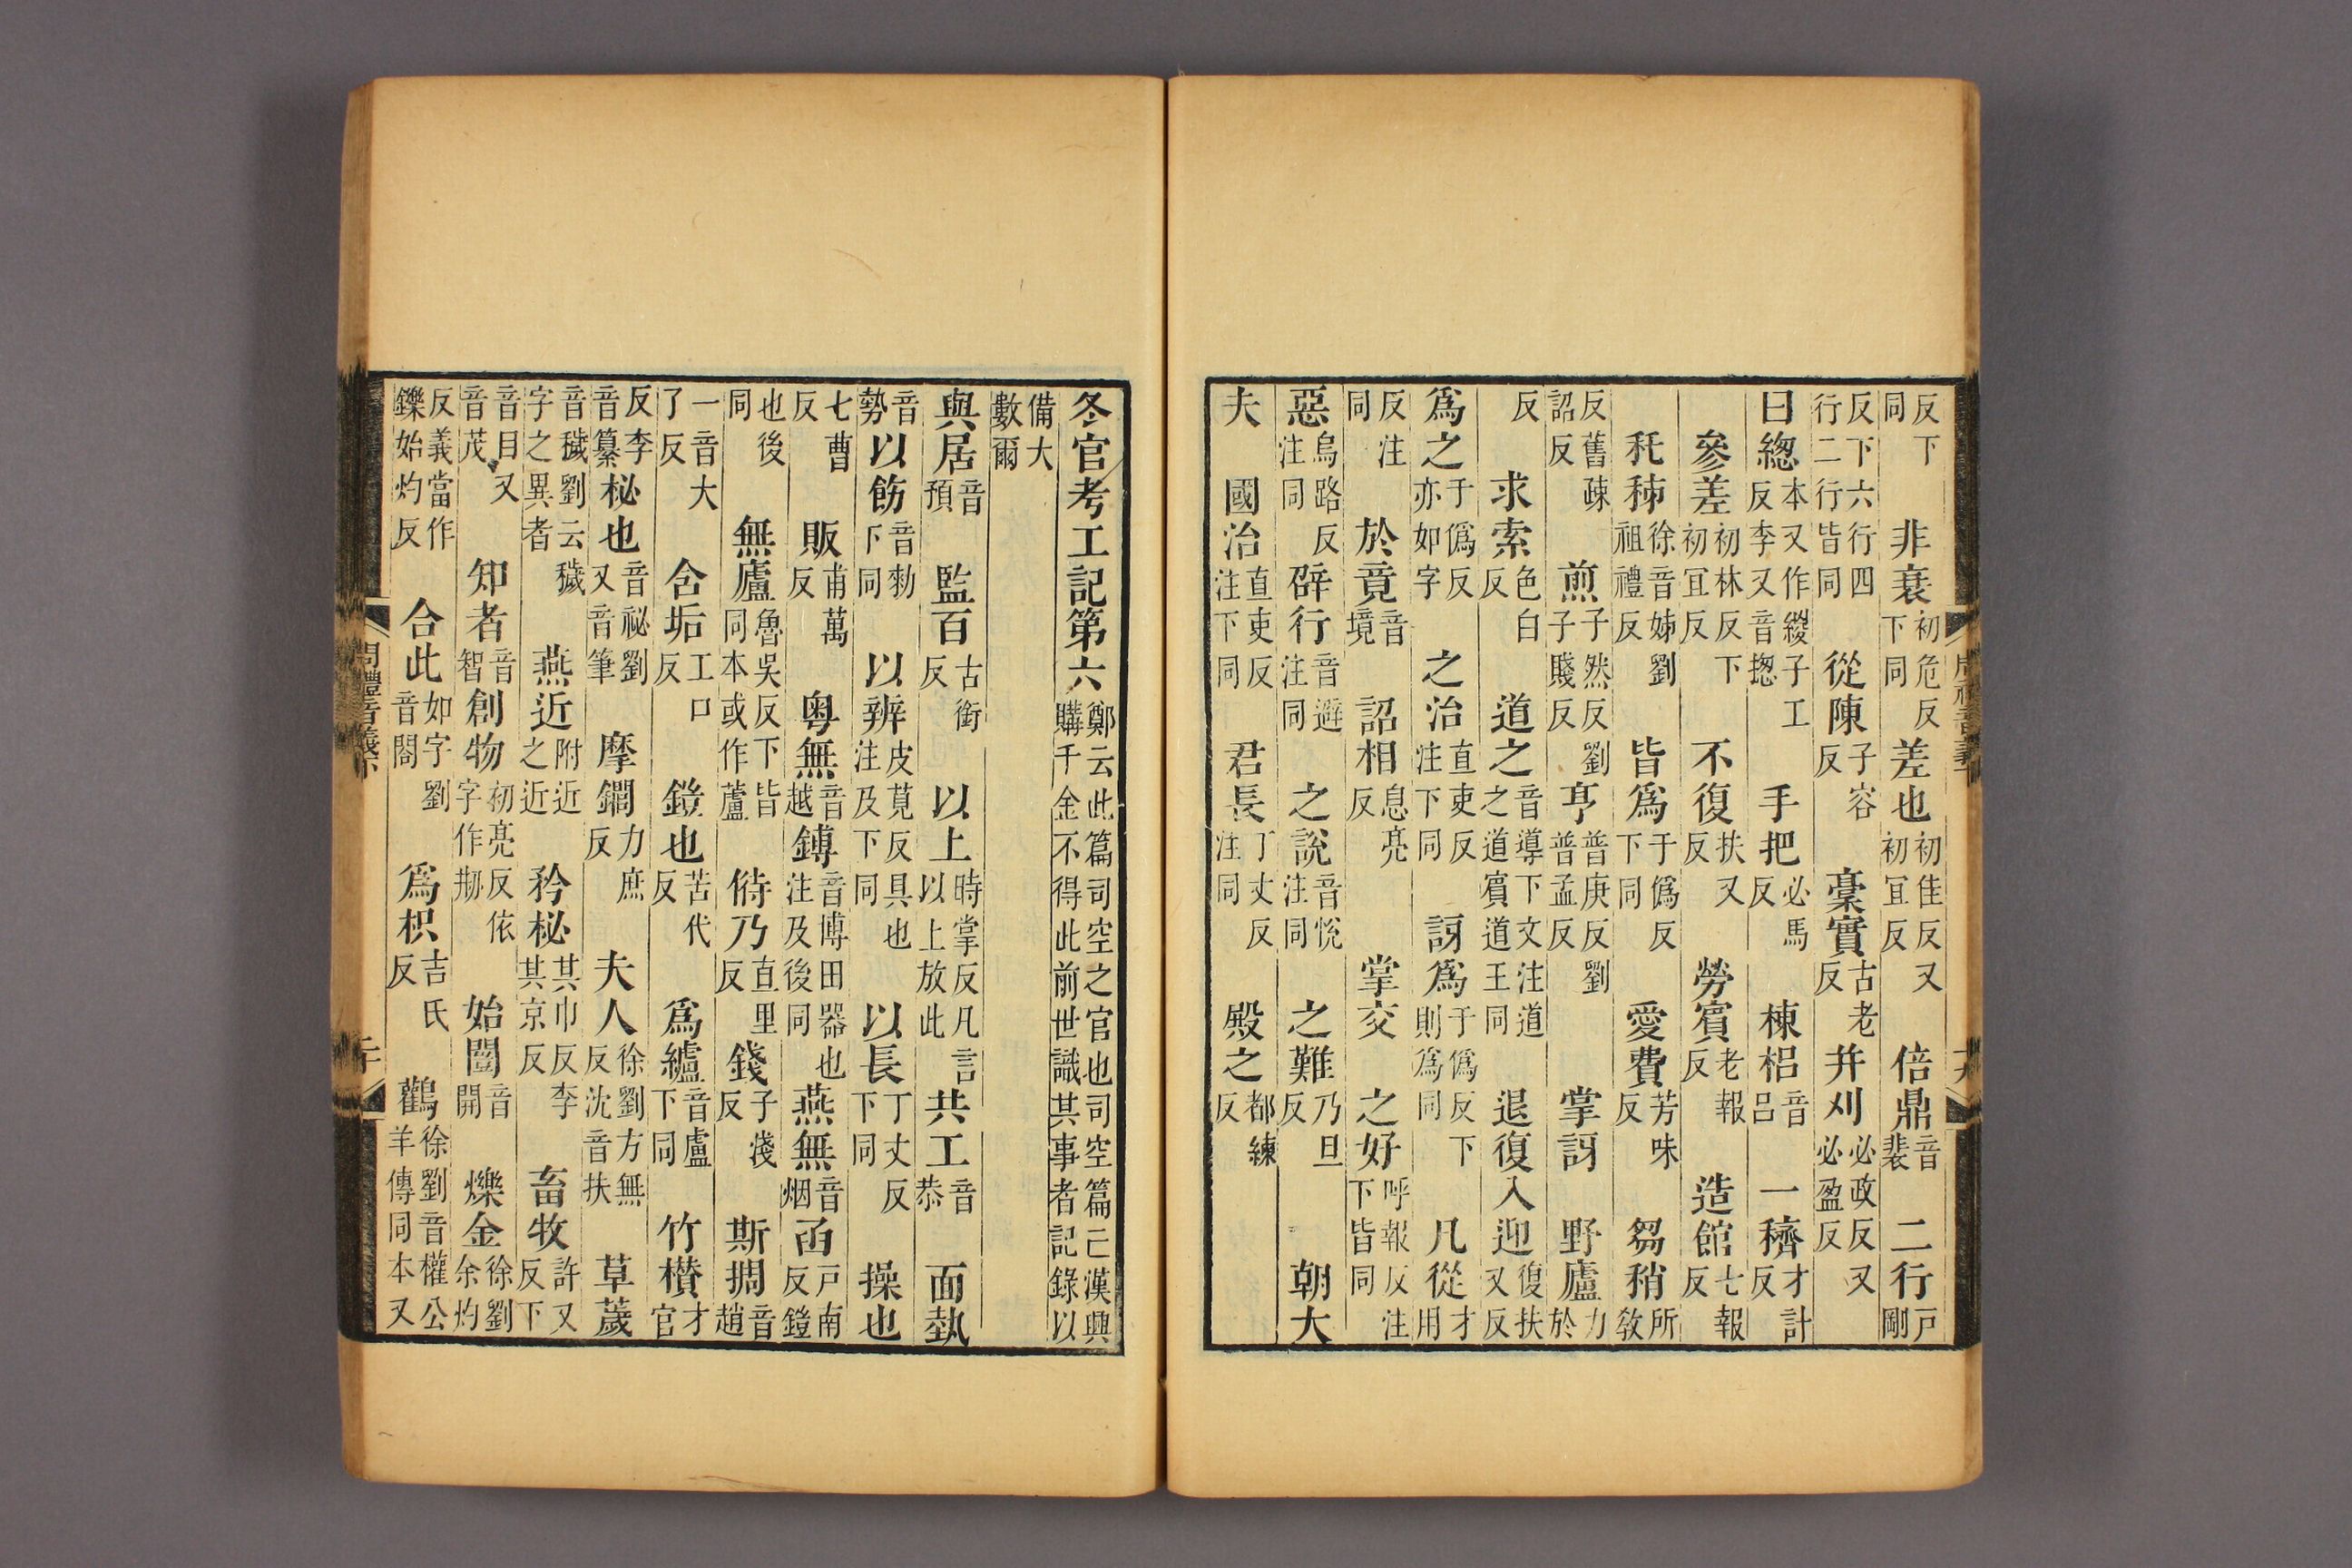 反下同非衰初危反下同差也初佳反又初宜反倍鼎音裴二行戶剛
反下六行四行二行皆同從陳子容反稾實古老反并刈必政反又必盈反
曰緫本又作緵子工反李又音揔手把必馬反棟梠音呂一穧才計反
參差初林反下初宜反不復扶又反勞賓老報反造館七報反
秅秭徐音姊劉祖禮反皆爲于僞反下同愛費芳味反芻稍所敎
反舊疎詔反煎子然反劉子賤反亨普庚反劉普孟反掌訝野廬力於
反求索色白反道之音導下文注道之道賓道王同退復入迎復扶又反
爲之于僞反亦如字之治直吏反注下同訝爲于僞反下則爲同凡從才用
反注同於竟音境詔相息亮反掌交之好呼報反注下皆同
惡烏路反注同辟行音避注同之說音悅注同之難乃旦反朝大
夫國治直吏反注下同君長丁丈反注同殿之都練反
冬官考工記第六鄭云此篇司空之官也司空篇亡漢興購千金不得此前世識其事者記錄以
備大數爾
與居音預監百古銜反以上時掌反凡言以上放此共工音恭面埶
音勢以飭音勑下同以辨皮莧反具也注及下同以長丁丈反下同操也
七曹反販甫萬反粵無音越鎛音博田器也注及後同燕無音烟函戶南反鎧
也後同無廬魯吳反下皆同本或作蘆偫乃直里反錢子淺反斯搁音趙
一音大了反含垢工口反鎧也苦代反爲纑音盧下同竹欑才官
反李音纂柲也音祕劉又音筆摩鐧力庶反夫人徐劉方無反沈音扶草薉
音穢劉云穢字之異者燕近附近之近矜柲其巾反李其京反畜牧許又反下
音目又音茂知者音智創物初亮反依字作刱始闓音開爍金徐劉余灼
反義當作鑠始灼反合此如字劉音閤爲枳吉氏反鸛徐劉音權公羊傳同本又